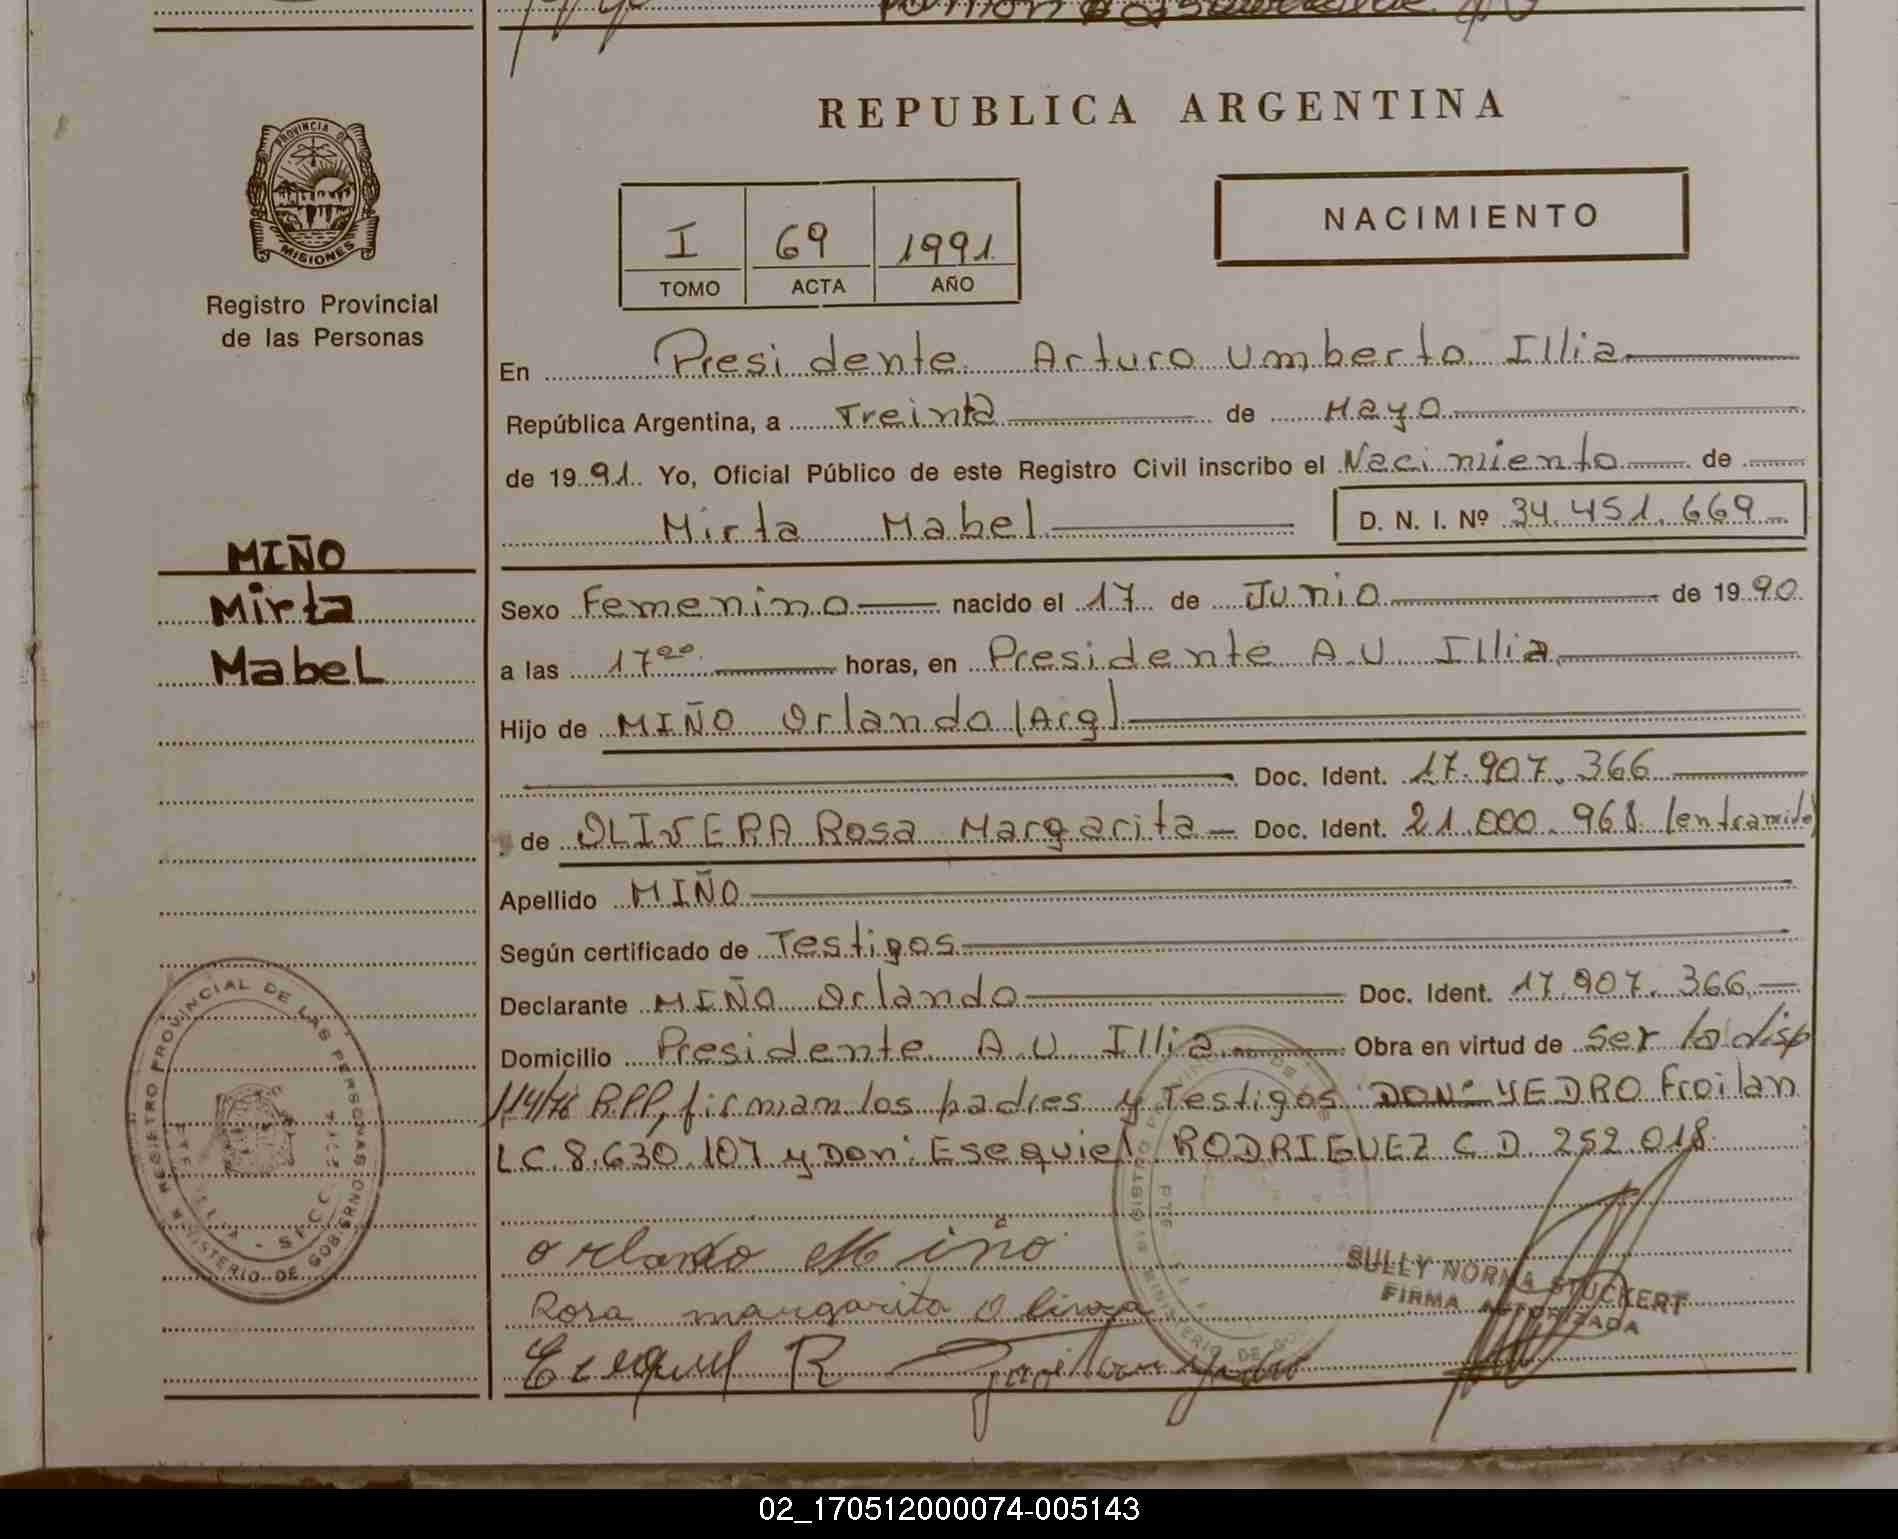 REPUBLICA ARGENTINA
PROVINCIA DE
MISIONES
Registro Provincial
de las Personas
I 69 1991
TOMO ACTA AÑO
NACIMIENTO
En Presidente Arturo Umberto Illia
República Argentina, a Treinta de Mayo
de 1991. Yo, Oficial Público de este Registro Civil inscribo el Nacimiento de
Mirta Mabel D. N. I. Nº 34.451.669
MIÑO
Mirta
Mabel
Sexo Femenino nacido el 17 de Junio de 1990
a las 17⁰⁰ horas, en Presidente A.U. Illia
Hijo de MIÑO Orlando (Arg)
Doc. Ident. 17.907.366
de OLIVERA Rosa Margarita Doc. Ident. 21.000.968 (entramite)
Apellido MIÑO
Según certificado de Testigos
Declarante MIÑO Orlando Doc. Ident. 17.907.366
Domicilio Presidente A.U. Illia Obra en virtud de ser la disp
114/76 R.P.P, firman los padres y Testigos DON: YEDRO Froilan
L.C. 8.630.107 y Don: Esequiel RODRIGUEZ C.D. 252.018
REGISTRO PROVINCIAL DE LAS PERSONAS
MINISTERIO DE GOBIERNO
Orlando Miño
Rosa margarita Olivera
SULLY NORMA STUCKERT
FIRMA AUTORIZADA
02_170512000074-005143